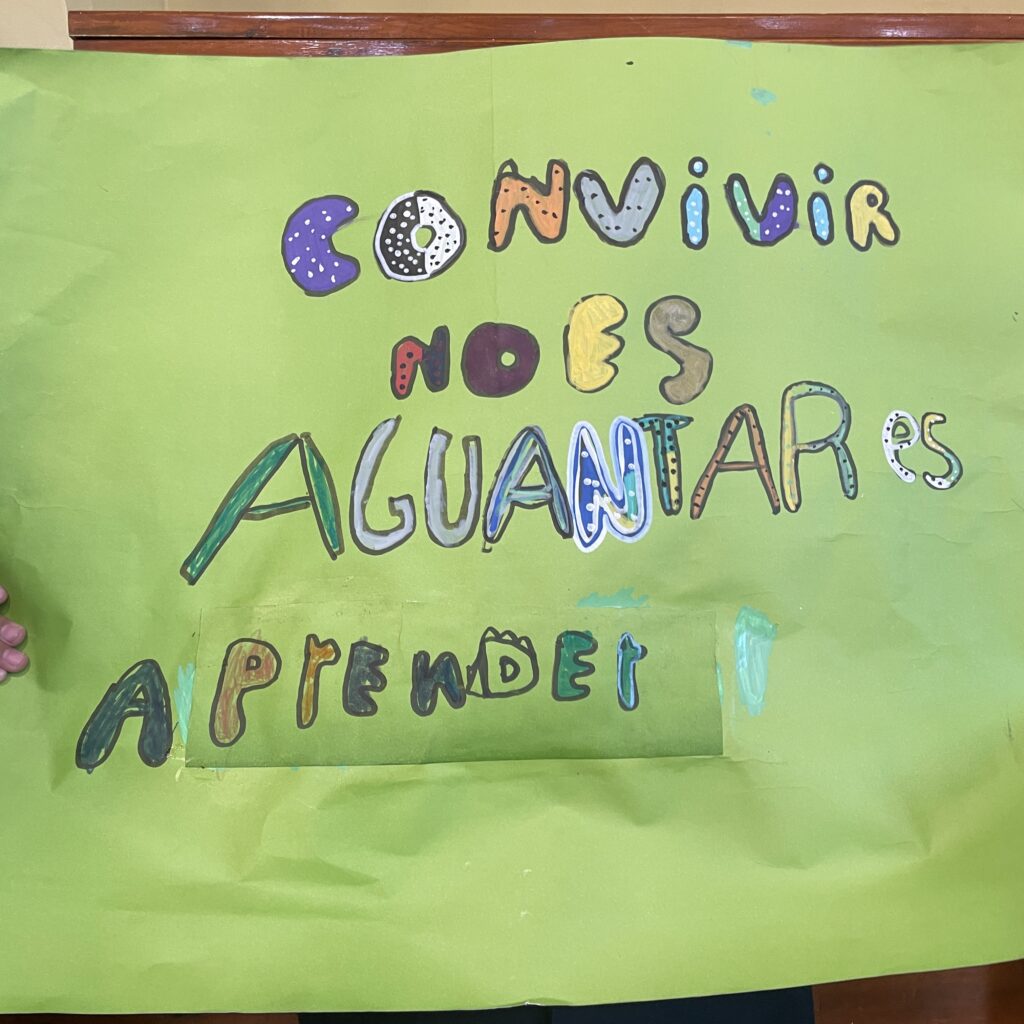 CONViViR
NO ES
AGUANTAR es
APrENDEr